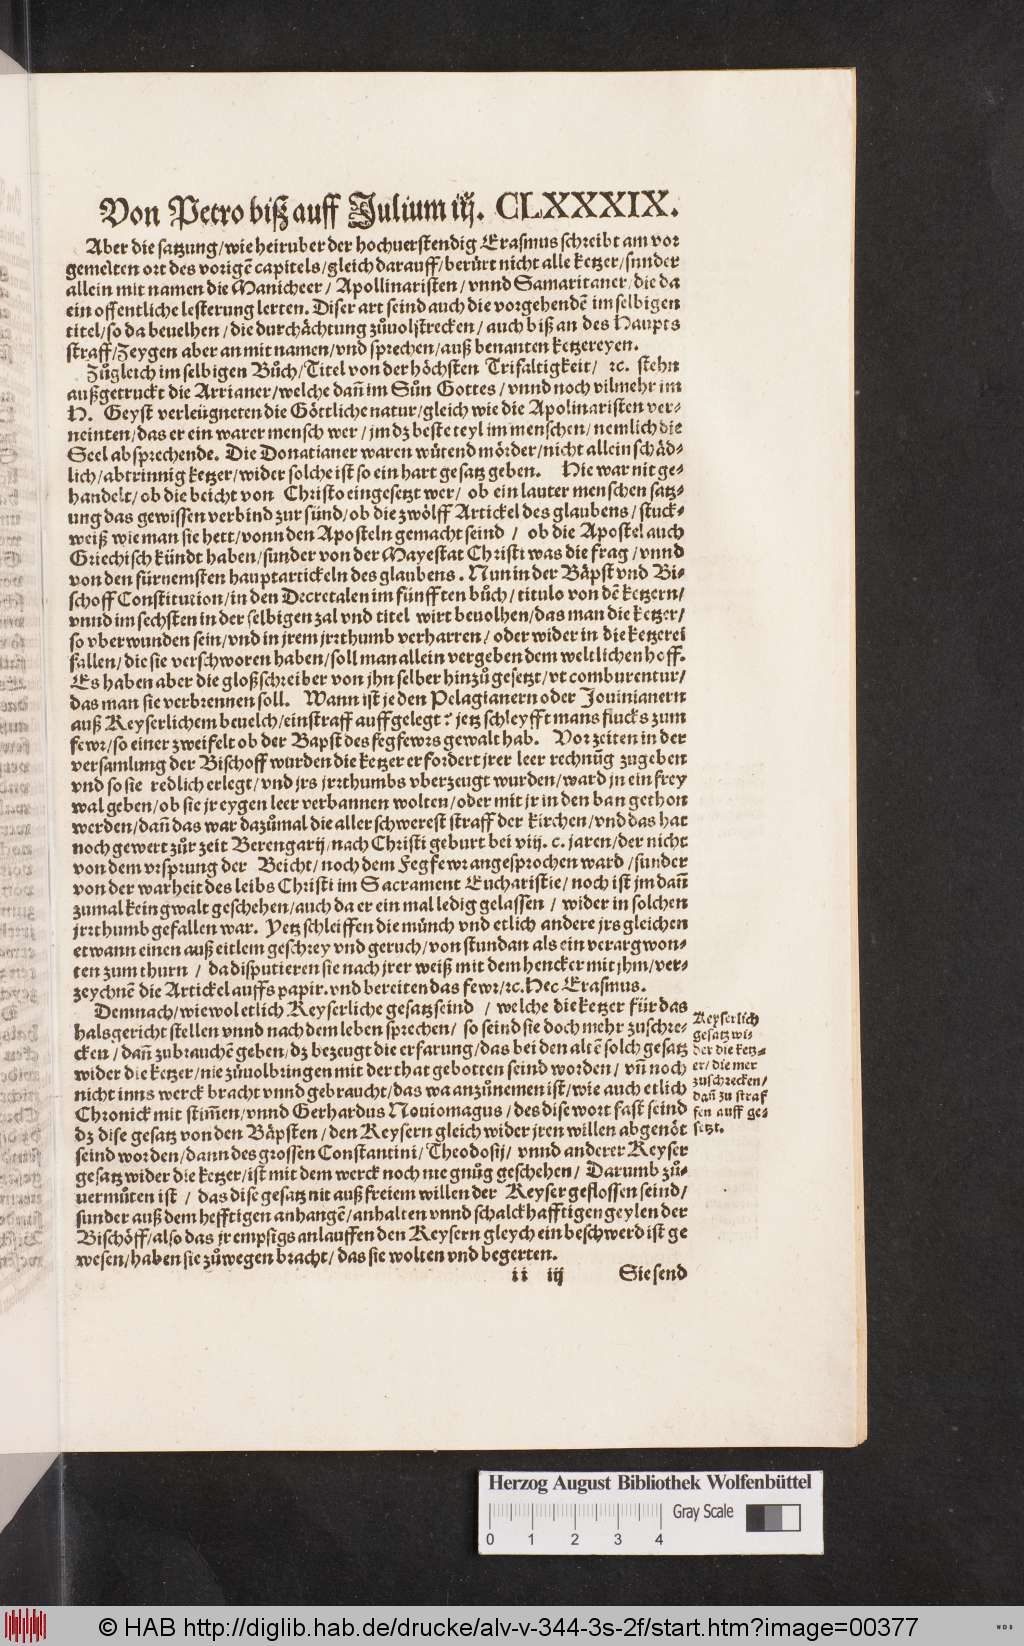 Von Petro biß auff Julium iij. CLXXXIX.
Aber die satzung/wie heirüber der hochuerstendig Erasmus schreibt am vor
gemelten ort des vorigẽ capitels/gleich darauff/berürt nicht alle ketzer/sunder
allein mit namen die Manicheer/ Apollinaristen/ vnnd Samaritaner/die da
ein offentliche lesterung lerten. Diser art seind auch die vorgehendẽ im selbigen
titel/so da beuelhen/die durchächtung zůuolstrecken/ auch biß an des Haupts
straff/Zeygen aber an mit namen/vnd sprechen/auß benanten ketzereyen.
Zůgleich im selbigen Bůch/Titel von der höchsten Trifaltigkeit/ ꝛc. stehn
außgetruckt die Arrianer/welche dañ im Sůn Gottes/ vnnd noch vilmehr im
H. Geyst verleügneten die Göttliche natur/gleich wie die Apolinaristen ver-
neinten/das er ein warer mensch wer/ jm dz beste teyl im menschen/nemlich die
Seel absprechende. Die Donatianer waren wůtend mörder/nicht allein schäd-
lich/abtrinnig ketzer/wider solche ist so ein hart gesatz geben. Hie war nit ge-
handelt/ob die beicht von Christo eingesetzt wer/ ob ein lauter menschen satz-
ung das gewissen verbind zur sünd/ob die zwölff Artickel des glaubens/stuck-
weiß wie man sie hett/vonn den Aposteln gemacht seind / ob die Apostel auch
Griechisch kündt haben/sunder von der Mayestat Christi was die frag/vnnd
von den fürnemsten hauptartickeln des glaubens. Nun in der Bäpst vnd Bi-
schoff Constitution/in den Decretalen im fünfften bůch/titulo von dẽ ketzern/
vnnd im sechsten in der selbigen zal vnd titel wirt beuolhen/das man die ketzer/
so vberwunden sein/vnd in jrem jrrthumb verharren/ oder wider in die ketzerei
fallen/die sie verschworen haben/soll man allein vergeben dem weltlichen hoff.
Es haben aber die gloßschreiber von jhn selber hinzů gesetzt/vt comburentur/
das man sie verbrennen soll. Wann ist je den Pelagianern oder Jouinianern
auß Keyserlichem beuelch/ein straff auffgelegt? jetz schleyfft mans flucks zum
fewr/so einer zweifelt ob der Bapst des fegfewrs gewalt hab. Vor zeiten in der
versamlung der Bischoff wurden die ketzer erfordert jrer leer rechnũg zugeben
vnd so sie redlich erlegt/vnd jrs jrrthumbs vberzeugt wurden/ward jn ein frey
wal geben/ob sie jr eygen leer verbannen wolten/oder mit jr in den ban gethon
werden/dañ das war dazůmal die aller schwerest straff der kirchen/vnd das hat
noch gewert zůr zeit Berengarij/nach Christi geburt bei viij. c. jaren/der nicht
von dem vrsprung der Beicht/noch dem Fegfewr angesprochen ward/sunder
von der warheit des leibs Christi im Sacrament Eucharistie/noch ist jm dañ
zumal kein gwalt geschehen/auch da er ein mal ledig gelassen / wider in solchen
jrrthumb gefallen war. Yetz schleiffen die münch vnd etlich andere jrs gleichen
etwann einen auß eitlem geschrey vnd geruch/von stundan als ein verargwon-
ten zum thurn / da disputieren sie nach jrer weiß mit dem hencker mit jhm/ver-
zeychnẽ die Artickel auffs papir. vnd bereiten das fewr/ꝛc. Hec Erasmus.
Demnach/wiewol etlich Keyserliche gesatz seind / welche die ketzer für das
halsgericht stellen vnnd nach dem leben sprechen/ so seind sie doch mehr zuschre-
cken/dañ zubrauchẽ geben/dz bezeugt die erfarung/das bei den altẽ solch gesatz
wider die ketzer/nie zůuolbringen mit der that gebotten seind worden/ vñ noch
nicht inns werck bracht vnnd gebraucht/das wa anzůnemen ist/wie auch etlich
Chronick mit stim̃en/vnnd Gerhardus Nouiomagus/des dise wort fast seind
dz dise gesatz von den Bäpsten/den Keysern gleich wider jren willen abgenöt
seind worden/dann des grossen Constantini/Theodosij/ vnnd anderer Keyser
gesatz wider die ketzer/ist mit dem werck noch nie gnůg geschehen/ Darumb zů-
uermůten ist / das dise gesatz nit auß freiem willen der Keyser geflossen seind/
sunder auß dem hefftigen anhangẽ/anhalten vnnd schalckhafftigen geylen der
Bischöff/also das jr empsigs anlauffen den Keysern gleych ein beschwerd ist ge
wesen/haben sie zůwegen bracht/das sie wolten vnd begerten.
ii iij Sie send
Keyserlich
gesatz wi-
der die ketz-
er/die mer
zuschrecken/
dañ zu straf
fen auff ge-
setzt.
Herzog August Bibliothek Wolfenbüttel
Gray Scale
0 1 2 3 4
© HAB http://diglib.hab.de/drucke/alv-v-344-3s-2f/start.htm?image=00377